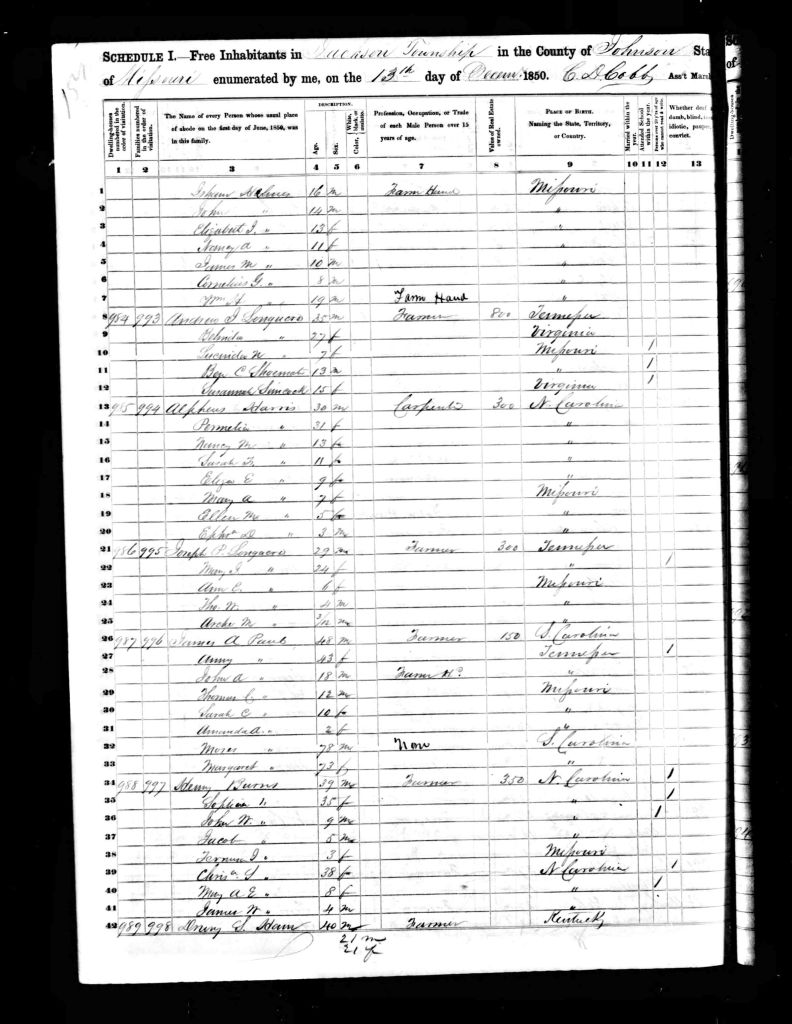 SCHEDULE I.—Free Inhabitants in Jackson Township in the County of Johnson Sta
of Missouri enumerated by me, on the 13th day of Decemr 1850. C. D. Cobb Ass't Marsh
Dwelling-houses numbered in the order of visitation.
Families numbered in the order of visitation.
The Name of every Person whose usual place of abode on the first day of June, 1850, was in this family.
DESCRIPTION.
Age.
Sex.
White, black, or mulatto.
Color,
Profession, Occupation, or Trade of each Male Person over 15 years of age.
Value of Real Estate owned.
PLACE OF BIRTH. Naming the State, Territory, or Country.
Married within the year.
Attended School within the year.
Whether deaf dumb, blind, idiotic, pauper convict.
1 2 3 4 5 6 7 8 9 10 11 12 13
1 16 m Farm Hand Missouri
2 John " 14 m "
3 Elizabeth J. " 13 f "
4 Nancy A " 11 f "
5 James M " 10 m "
6 Cornelius G. " 8 m "
7 Wm H " 19 m Farm Hand "
8 984 993 Andrew J Longacre 35 m Farmer 800 Tennessee
9 Belinda " 27 f Virginia
10 Lucinda " 7 f Missouri 1
11 Benj C 13 m " 1
12 Susannah Simcock 15 f Virginia 1
13 985 994 Alpheus Harris 30 m Carpenter 300 N. Carolina
14 Permelia " 31 f "
15 Nancy M " 13 f "
16 Sarah F. " 11 f "
17 Eliza E " 9 f "
18 Mary A " 7 f Missouri
19 Ellen M " 5 f "
20 Ephm D " 3 m "
21 986 995 Joseph P. Longacre 29 m Farmer 300 Tennessee
22 Mary J " 24 f " 1
23 Ann E. " 6 f Missouri
24 Tho. W. " 4 m "
25 Archi M " 3/12 m "
26 987 996 James A Paul 48 m Farmer 150 S. Carolina
27 Anny " 43 f Tennessee 1
28 John A " 18 m Farm Hd "
29 Thomas C. " 12 m Missouri
30 Sarah C " 10 f "
31 Amanda A. " 2 f "
32 Moses " 78 m None S. Carolina
33 Margaret " 73 f "
34 988 997 Henry Burns 39 m Farmer 350 N. Carolina 1
35 Sophia " 35 f " 1
36 John W. " 9 m " 1
37 Jacob " 5 m "
38 " 3 f Missouri
39 S " 38 f N. Carolina 1
40 Mary A E " 8 f " 1
41 James W " 4 m "
42 989 998 Drury S. Ham 40 m Farmer Kentucky
21 m
21 f